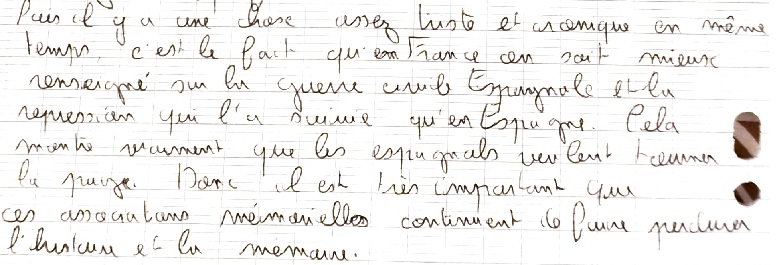 Puis il y a une chose assez triste et ironique en même
temps, c'est le fait qu'en France on soit mieux
renseigné sur la guerre civile Espagnole et la
repression qui l'a suivie qu'en Espagne. Cela
montre vraiment que les espagnols veulent tourner
la page. Donc il est très important que
ces associations mémorielles continuent de faire perdurer
l'histoire et la memoire.